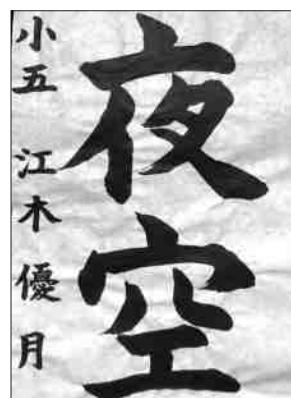 夜空
小五 江木優月